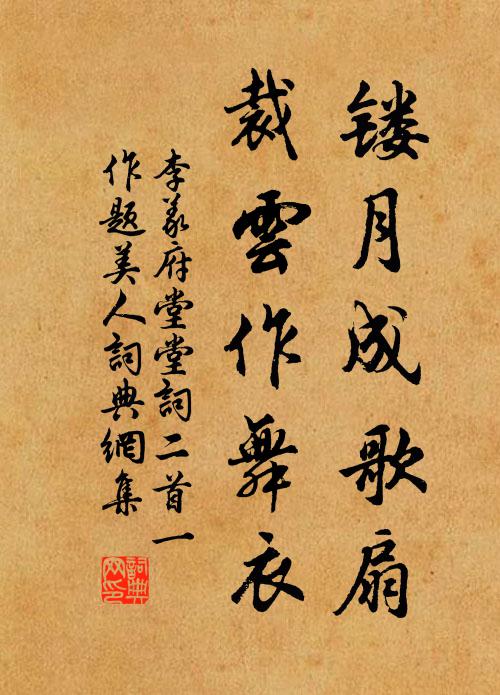 镂月成歌扇
裁雲作舞衣
李義府堂堂詞二首一
作題美人詞典網集
詞典
网印